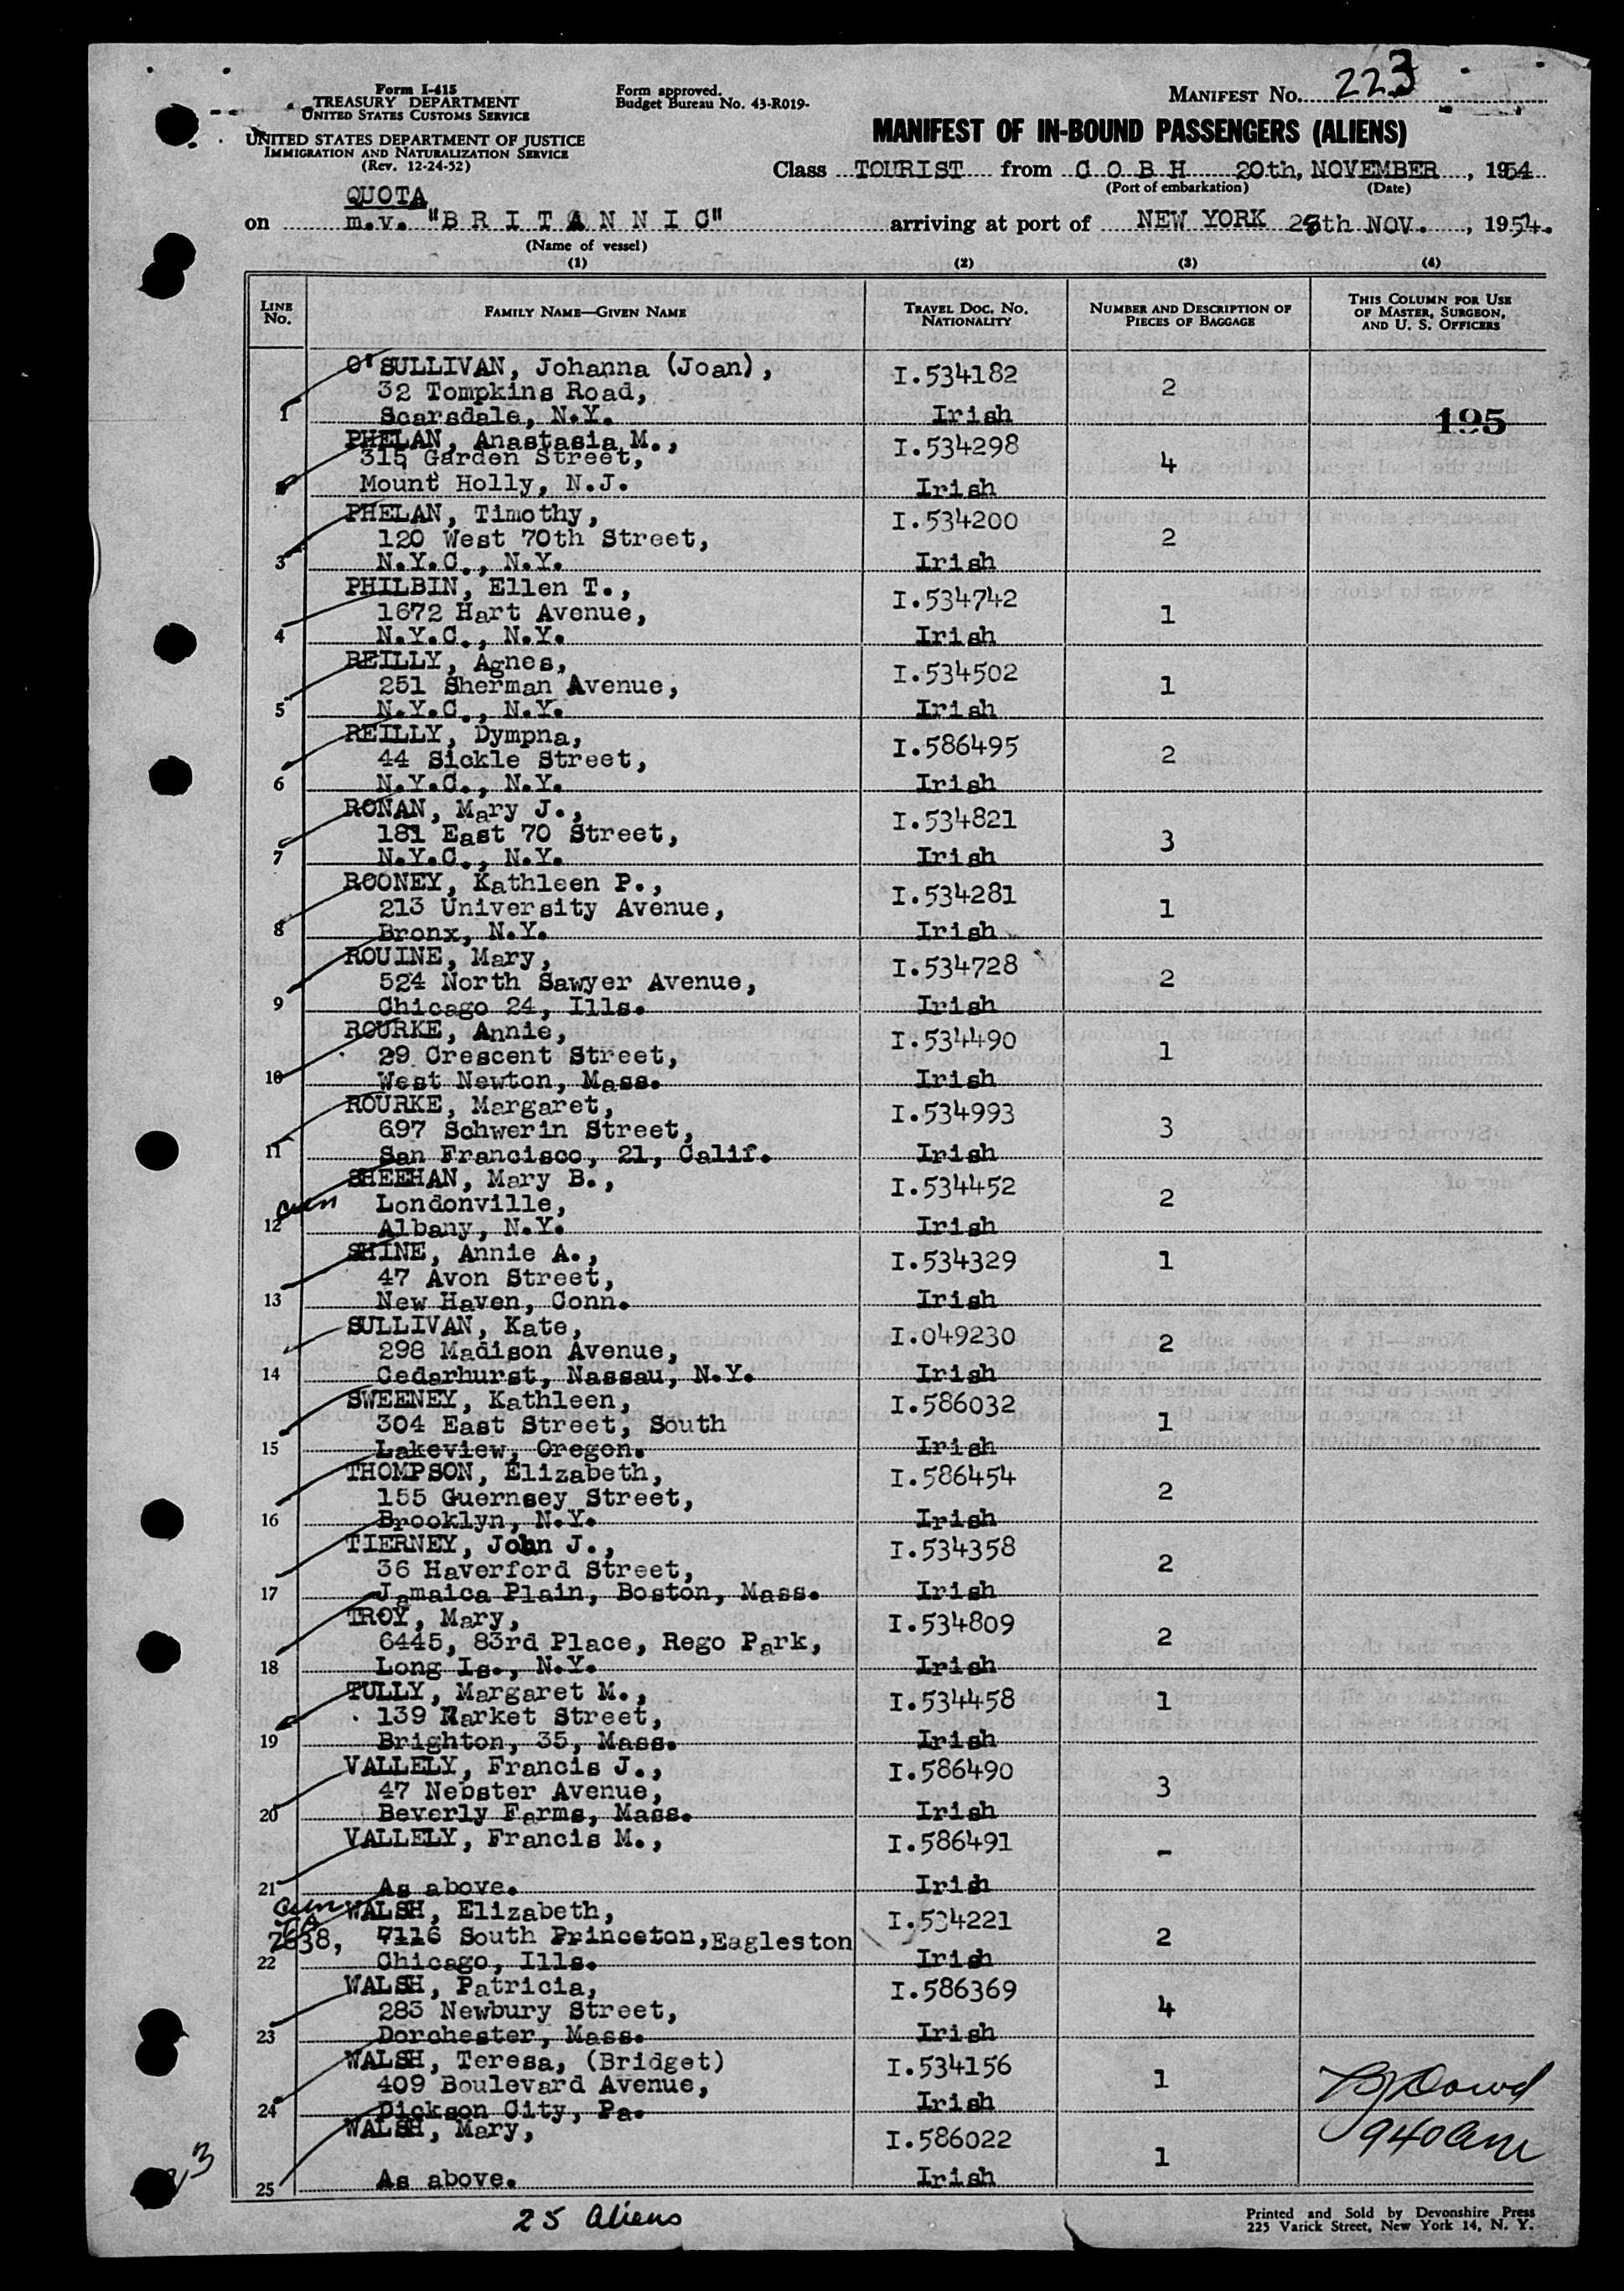 223
Form I-415
TREASURY DEPARTMENT
UNITED STATES CUSTOMS SERVICE
UNITED STATES DEPARTMENT OF JUSTICE
IMMIGRATION AND NATURALIZATION SERVICE
(Rev. 12-24-52)
Form approved.
Budget Bureau No. 43-R019-
MANIFEST No. 223
MANIFEST OF IN-BOUND PASSENGERS (ALIENS)
Class TOURIST from C O B H 20th, NOVEMBER, 1954
(Port of embarkation) (Date)
QUOTA
on m.v. "B R I T A N N I C" arriving at port of NEW YORK 28th NOV., 1954.
(Name of vessel)
(1) (2) (3) (4)
LINE No. FAMILY NAME—GIVEN NAME TRAVEL DOC. No. NATIONALITY NUMBER AND DESCRIPTION OF PIECES OF BAGGAGE THIS COLUMN FOR USE OF MASTER, SURGEON, AND U. S. OFFICERS
O'SULLIVAN, Johanna (Joan), I.534182
32 Tompkins Road, 2
1 Scarsdale, N.Y. Irish 195
PHELAN, Anastasia M., I.534298
315 Garden Street, 4
Mount Holly, N.J. Irish
PHELAN, Timothy, I.534200
120 West 70th Street, 2
3 N.Y.C., N.Y. Irish
PHILBIN, Ellen T., I.534742
1672 Hart Avenue, 1
4 N.Y.C., N.Y. Irish
REILLY, Agnes, I.534502
251 Sherman Avenue, 1
5 N.Y.C., N.Y. Irish
REILLY, Dympna, I.586495
44 Sickle Street, 2
6 N.Y.C., N.Y. Irish
RONAN, Mary J., I.534821
181 East 70 Street, 3
7 N.Y.C., N.Y. Irish
ROONEY, Kathleen P., I.534281
213 University Avenue, 1
8 Bronx, N.Y. Irish
ROUINE, Mary, I.534728
524 North Sawyer Avenue, 2
9 Chicago 24, Ills. Irish
ROURKE, Annie, I.534490
29 Crescent Street, 1
10 West Newton, Mass. Irish
ROURKE, Margaret, I.534993
697 Schwerin Street, 3
11 San Francisco, 21, Calif. Irish
SHEEHAN, Mary B., I.534452
Londonville, 2
12 Albany, N.Y. Irish
SHINE, Annie A., I.534329 1
47 Avon Street,
13 New Haven, Conn. Irish
SULLIVAN, Kate, I.049230
298 Madison Avenue, 2
14 Cedarhurst, Nassau, N.Y. Irish
SWEENEY, Kathleen, I.586032
304 East Street, South 1
15 Lakeview, Oregon. Irish
THOMPSON, Elizabeth, I.586454
155 Guernsey Street, 2
16 Brooklyn, N.Y. Irish
TIERNEY, John J., I.534358
36 Haverford Street, 2
17 Jamaica Plain, Boston, Mass. Irish
TROY, Mary, I.534809
6445, 83rd Place, Rego Park, 2
18 Long Is., N.Y. Irish
TULLY, Margaret M., I.534458 1
139 Market Street,
19 Brighton, 35, Mass. Irish
VALLELY, Francis J., I.586490
47 Nebster Avenue, 3
20 Beverly Farms, Mass. Irish
VALLELY, Francis M., I.586491
-
21 As above. Irish
WALSH, Elizabeth, I.534221
7638, 7116 South Princeton, Eagleston 2
22 Chicago, Ills. Irish
WALSH, Patricia, I.586369
283 Newbury Street, 4
23 Dorchester, Mass. Irish
WALSH, Teresa, (Bridget) I.534156
409 Boulevard Avenue, 1
24 Dickson City, Pa. Irish
WALSH, Mary, I.586022 940 am
1
25 As above. Irish
25 Aliens
Printed and Sold by Devonshire Press
225 Varick Street, New York 14, N. Y.